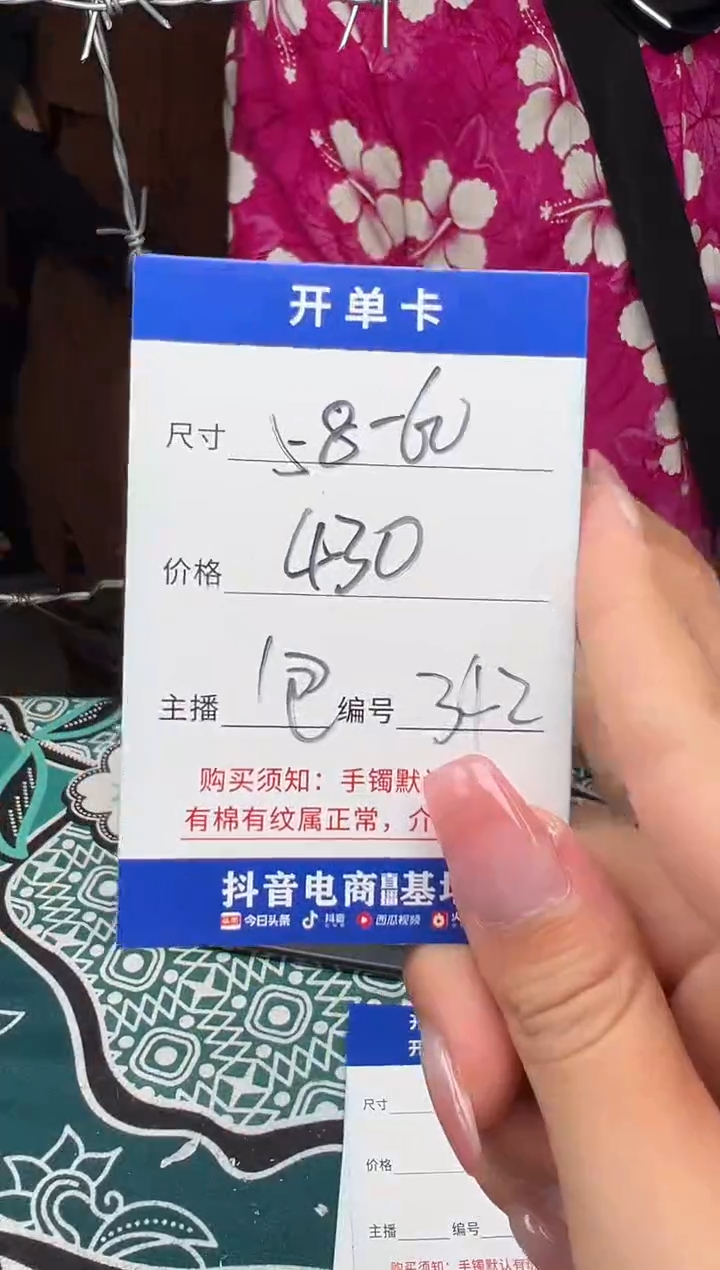 开单卡
尺寸 58-60
价格 430
主播 包 编号 342
购买须知：手镯默
有棉有纹属正常，介
抖音电商直播基
今日头条 抖音 西瓜视频 火
开
尺寸
价格
主播 编号
购买须知：手镯默认有